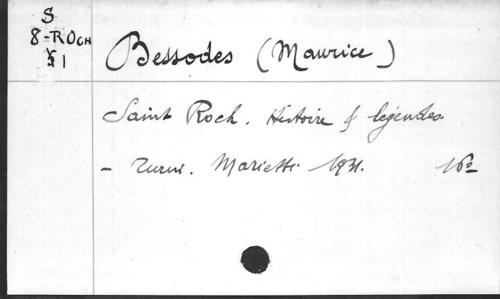 S
8-ROCH
§ 1
Bessodes (Maurice)
Saint Roch. Histoire & légendes
- Turin. Marietti 1931. 16º